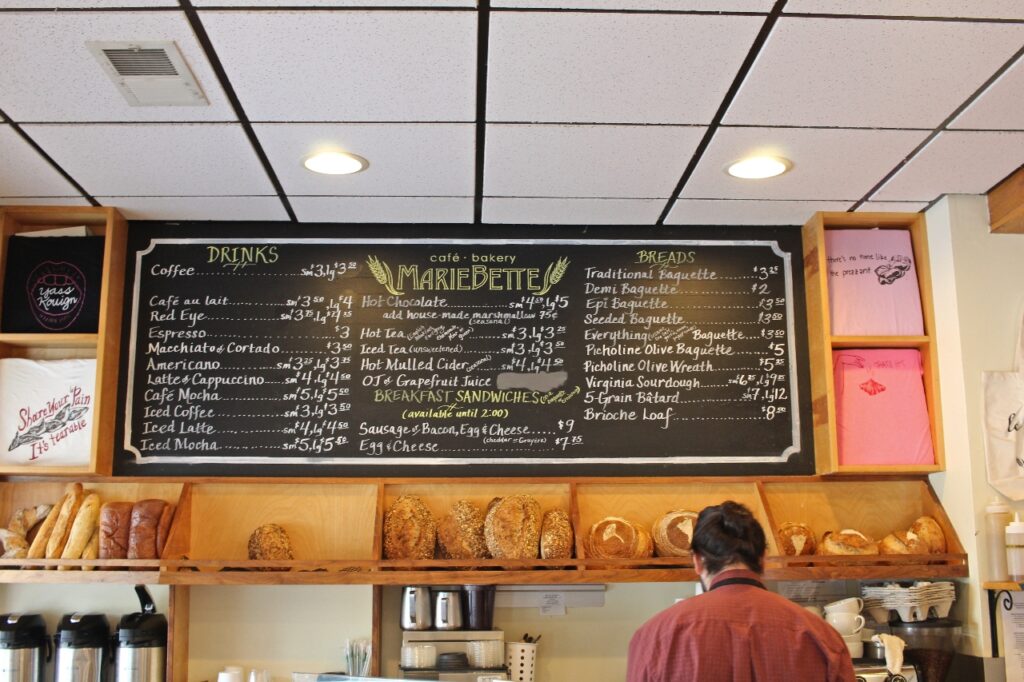 DRINKS
Coffee sm $3, lg $3.50
Café au lait sm $3.50, lg $4
Red Eye
Espresso $3
Macchiato & Cortado $3.50
Americano
Latte & Cappuccino sm $4, lg $4.50
Café Mocha sm $5, lg $5.50
Iced Coffee sm $3, lg $3.50
Iced Latte sm $4, lg $4.50
Iced Mocha
café · bakery
MARIEBETTE
Hot Chocolate sm $4.50, lg $5
add house-made marshmallow 75¢
Hot Tea sm $3, lg $3.25
Iced Tea (unsweetened)
Hot Mulled Cider
OJ & Grapefruit Juice
BREAKFAST SANDWICHES
(available until 2:00)
Sausage or Bacon, Egg & Cheese $9
(cheddar or Gruyère)
Egg & Cheese $7.75
BREADS
Traditional Baguette $3.25
Demi Baguette $2
Epi Baguette $3.50
Seeded Baguette $3.50
Everything Baguette $3.50
Picholine Olive Baguette $5
Picholine Olive Wreath
Virginia Sourdough
5-Grain Bâtard sm $7, lg $12
Brioche Loaf $8.50
Yass
Kouign
Share Your Pain
It's tearable
there's no mome like
the prezant